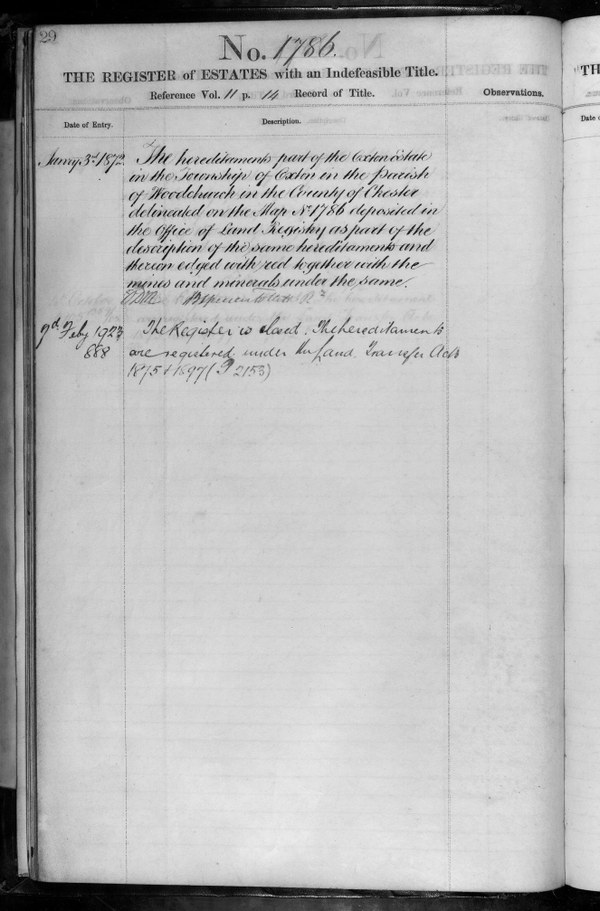 29
No. 1786.
THE REGISTER of ESTATES with an Indefeasible Title.
Reference Vol. 11 p. 14 Record of Title.
Observations.
Date of Entry.
Description.
Jany. 3rd 1872.
The hereditaments part of the Oxton Estate
in the Township of Oxton in the Parish
of Woodchurch in the County of Chester
delineated on the Map No. 1786 deposited in
the Office of Land Registry as part of the
description of the same hereditaments and
thereon edged with red together with the
mines and minerals under the same.
9th Feby 1923
888
The Register is closed. The hereditaments
are registered under the Land Transfer Acts
1875 & 1897 (P 2153)
TH
Date o